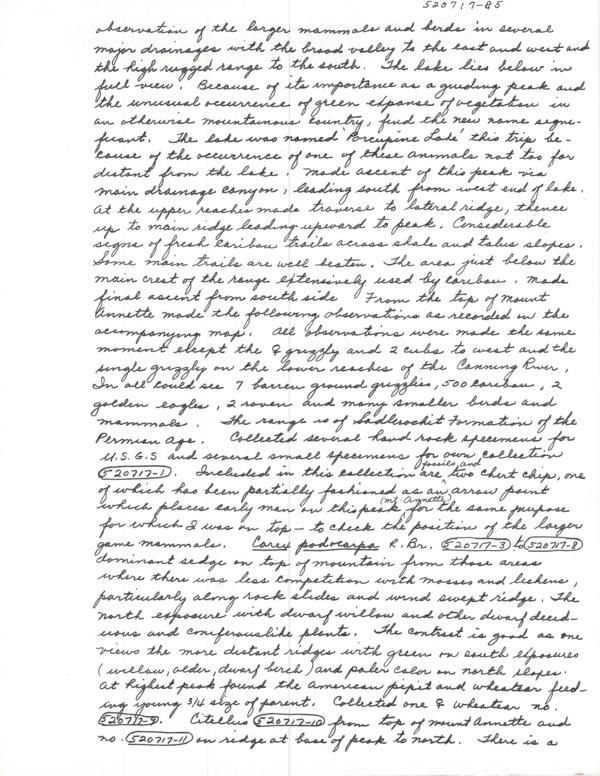 520717-85
observation of the larger mammals and birds in several
major drainages with the broad valley to the east and west and
the high rugged range to the south. The lake lies below in
full view. Because of its importance as a guiding peak and
the unusual occurrence of green expanse of vegetation in
an otherwise mountainous country, find the new name signi-
ficant. The lake was named 'Porcupine Lake' this trip be-
cause of the occurrence of one of these animals not too far
distant from the lake. Made ascent of this peak via
main drainage canyon, leading south from west end of lake.
At the upper reaches made traverse to lateral ridge, thence
up to main ridge leading upward to peak. Considerable
signs of fresh caribou trails across shale and talus slopes.
Some main trails are well beaten. The area just below the
main crest of the range extensively used by caribou. Made
final ascent from south side From the top of Mount
Annette made the following observations as recorded on the
accompanying map. All observations were made the same
moment except the ♀ grizzly and 2 cubs to west and the
single grizzly on the lower reaches of the Canning River.
In all could see 7 barren ground grizzlies, 500 caribou, 2
golden eagles, 2 raven and many smaller birds and
mammals. The range is of Sadlerochit Formation of the
Permian age. Collected several hand rock specimens for
U.S.G.S and several small specimens for own collection
520717-1. Included in this collection are fossils and two chert chip, one
of which has been partially fashioned as an arrow point
which places early man on this peak (Mt. Annette) for the same purpose
for which I was on top - to check the position of the larger
game mammals. Carex podocarpa R. Br. 520717-3 to 520717-8
dominant sedge on top of mountain from those areas
where there was less competition with mosses and lichens,
particularly along rock slides and wind swept ridge. The
north exposure with dwarf willow and other dwarf decid-
uous and coniferouslike plants. The contrast is good as one
views the more distant ridges with green on south exposures
(willow, alder, dwarf birch) and paler color on north slopes.
At highest peak found the American pipit and wheatear feed-
ing young 3/4 size of parent. Collected one ♀ wheatear no.
520717-9. Citellus 520717-10 from top of Mount Annette and
no. 520717-11 on ridge at base of peak to north. There is a